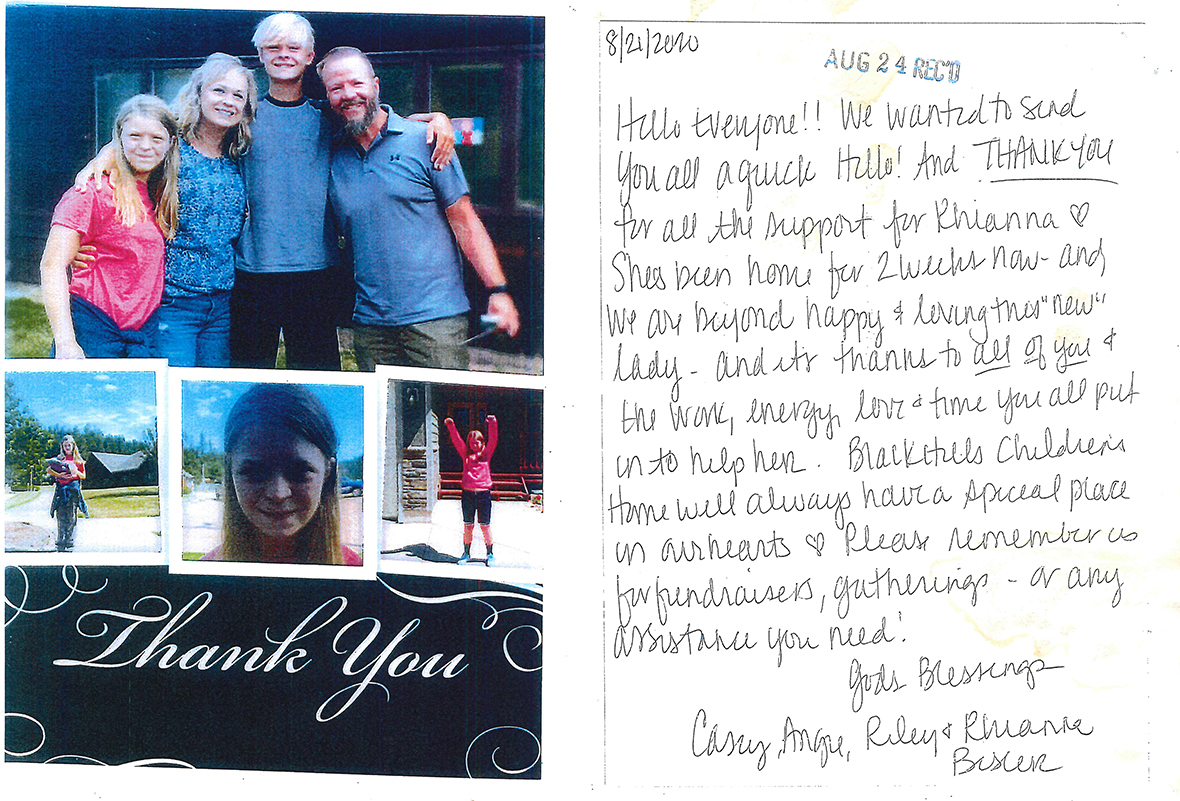 Thank You
8/21/2020
AUG 24 REC'D
Hello Everyone!! We wanted to send
you all a quick Hello! And THANK YOU
for all the support for Rhianna ♡
Shes been home for 2 weeks now - and
we are beyond happy & loving this "new"
lady - and its thanks to all of you &
the work, energy, love & time you all put
in to help her. Black Hills Children's
Home will always have a speceal place
in our hearts ♡ Please remember us
for fundraisers, gatherings - or any
assistance you need!
Gods Blessings
Casey, Angie, Riley & Rhianna